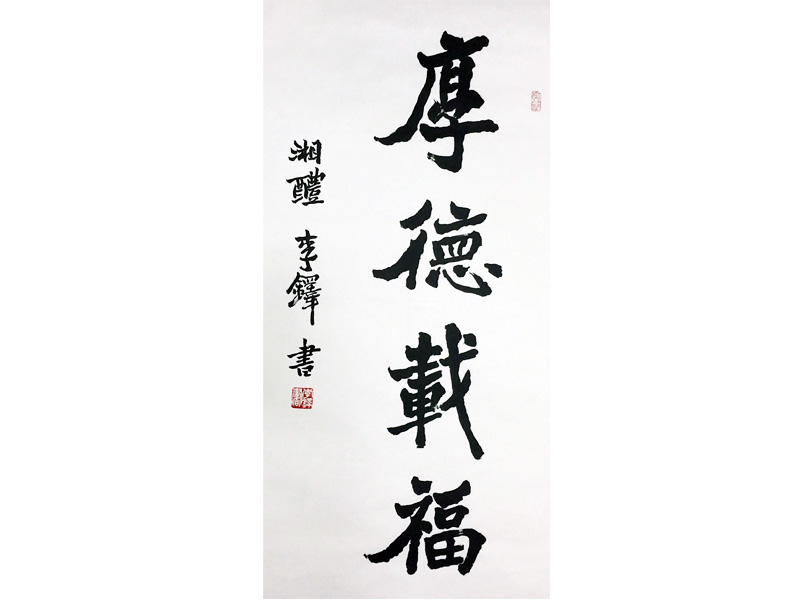 厚德載福
湘醴 李鐸 書